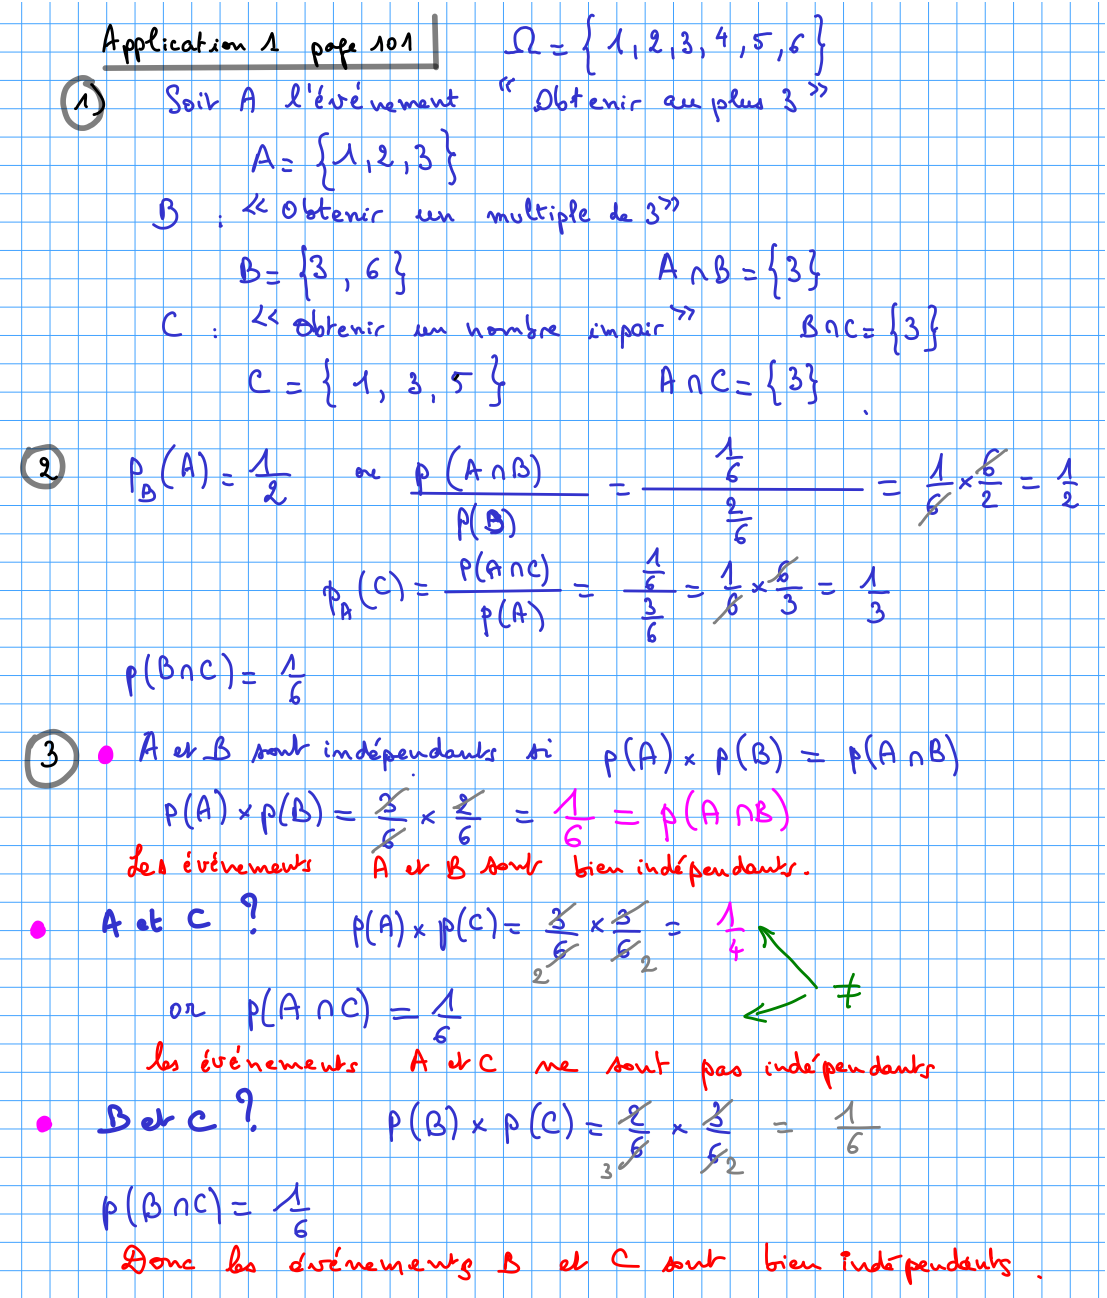 Application 1 page 101 Ω = { 1, 2, 3, 4, 5, 6 }
1) Soit A l'événement " Obtenir au plus 3 »
A = { 1, 2, 3 }
B : << Obtenir un multiple de 3 >>
B = { 3 , 6 } A ∩ B = { 3 }
C : << Obtenir un nombre impair >> B ∩ C = { 3 }
C = { 1, 3, 5 } A ∩ C = { 3 }
2 p_B(A) = 1/2 ou p(A ∩ B)/p(B) = (1/6)/(2/6) = 1/6 × 6/2 = 1/2
p_A(C) = p(A ∩ C)/p(A) = (1/6)/(3/6) = 1/6 × 6/3 = 1/3
p(B ∩ C) = 1/6
3 • A et B sont indépendants si p(A) × p(B) = p(A ∩ B)
p(A) × p(B) = 3/6 × 2/6 = 1/6 = p(A ∩ B)
Les événements A et B sont bien indépendants.
• A et C ? p(A) × p(C) = 3/6 2 × 3/6 2 = 1/4
or p(A ∩ C) = 1/6 ≠
les événements A et C ne sont pas indépendants
• B et C ? P(B) × p(C) = 2/6 3 × 3/6 2 = 1/6
p(B ∩ C) = 1/6
Donc les événements B et C sont bien indépendants.